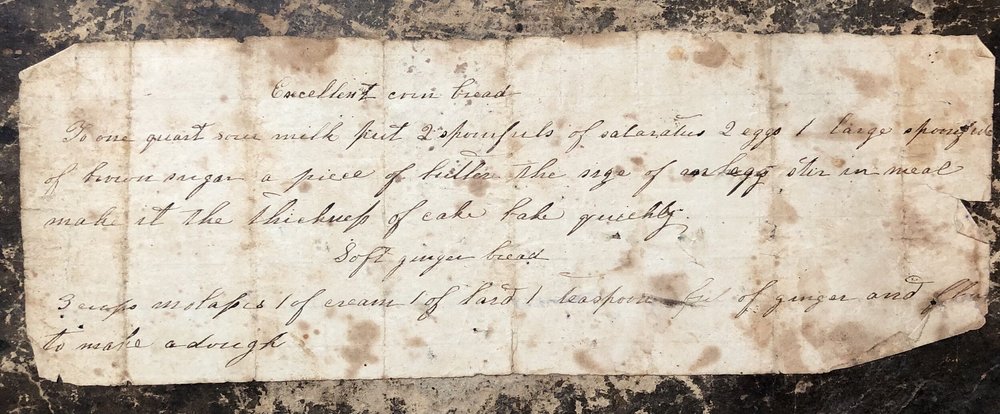 Excellent corn bread
To one quart sour milk put 2 spoonfuls of salaratus 2 eggs 1 large spoonful
of brown sugar a piece of butter the size of an egg stir in meal
make it the thickness of cake bake quickly
Soft ginger bread
3 cups molasses 1 of cream 1 of lard 1 teaspoon ful of ginger and
to make a dough